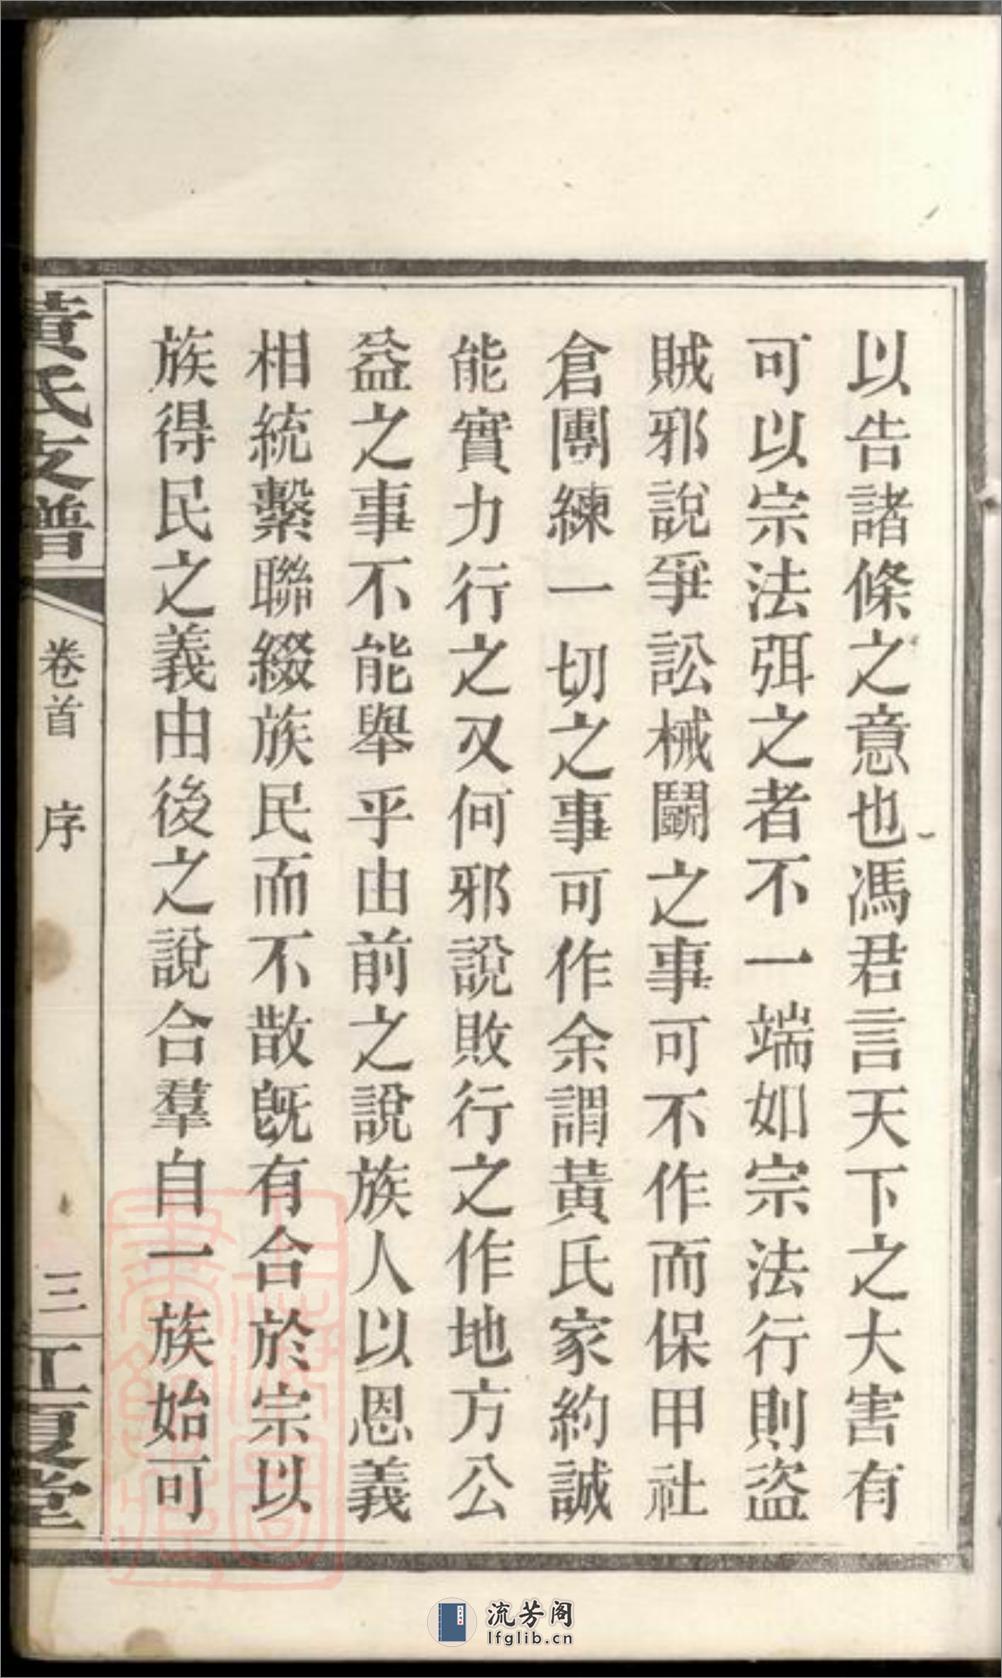 以告諸條之意也馮君言天下之大害有
可以宗法弭之者不一端如宗法行則盜
賊邪說爭訟械鬭之事可不作而保甲社
倉團練一切之事可作余謂黃氏家約誠
能實力行之又何邪說敗行之作地方公
益之事不能舉乎由前之說族人以恩義
相統繫聯綴族民而不散旣有合於宗以
族得民之義由後之說合羣自一族始可
黃氏支譜
卷首 序
三
江夏堂
流芳阁
lfglib.cn